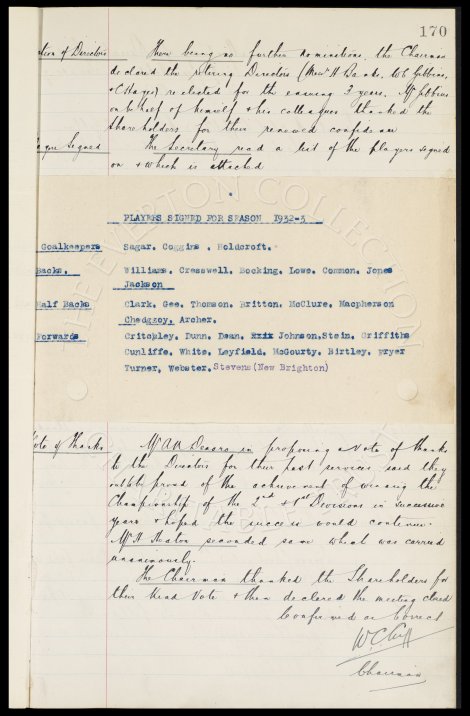 170
ction of Directors There being no further nominations, the Chairman
declared the retiring Directors (Messrs H Banks, W E Gibbins,
& C Hayes) re elected for the ensuing 3 years. Mr Gibbins
on behalf of himself & his colleagues thanked the
Shareholders for their renewed confidence
Signed The Secretary read a list of the players signed
on & which is attached
THE EVERTON COLLECTION
PLAYERS SIGNED FOR SEASON 1932-3
Goalkeepers Sagar. Coggins . Holdcroft.
Backs. Williams. Cresswell. Bocking. Lowe. Common. Jones
Jackson
Half Backs Clark. Gee. Thomson. Britton. McClure. Macpherson
Chedgzoy. Archer.
Forwards Critchley. Dunn. Dean. Johnson. Stein. Griffiths
Cunliffe. White. Leyfield. McGourty. Birtley. Fryer
Turner. Webster. Stevens (New Brighton)
Vote of Thanks Mr in proposing a Vote of thanks
to the Directors for their past services, said they
be proud of the achievement of winning the
Championship of the 2nd & 1st Divisions in successive
years & hoped the success would continue.
Mr H Heaton seconded same which was carried
unanimously.
The Chairman thanked the Shareholders for
their kind Vote & then declared the meeting closed
Confirmed as Correct
W. C. Cuff
Chairman